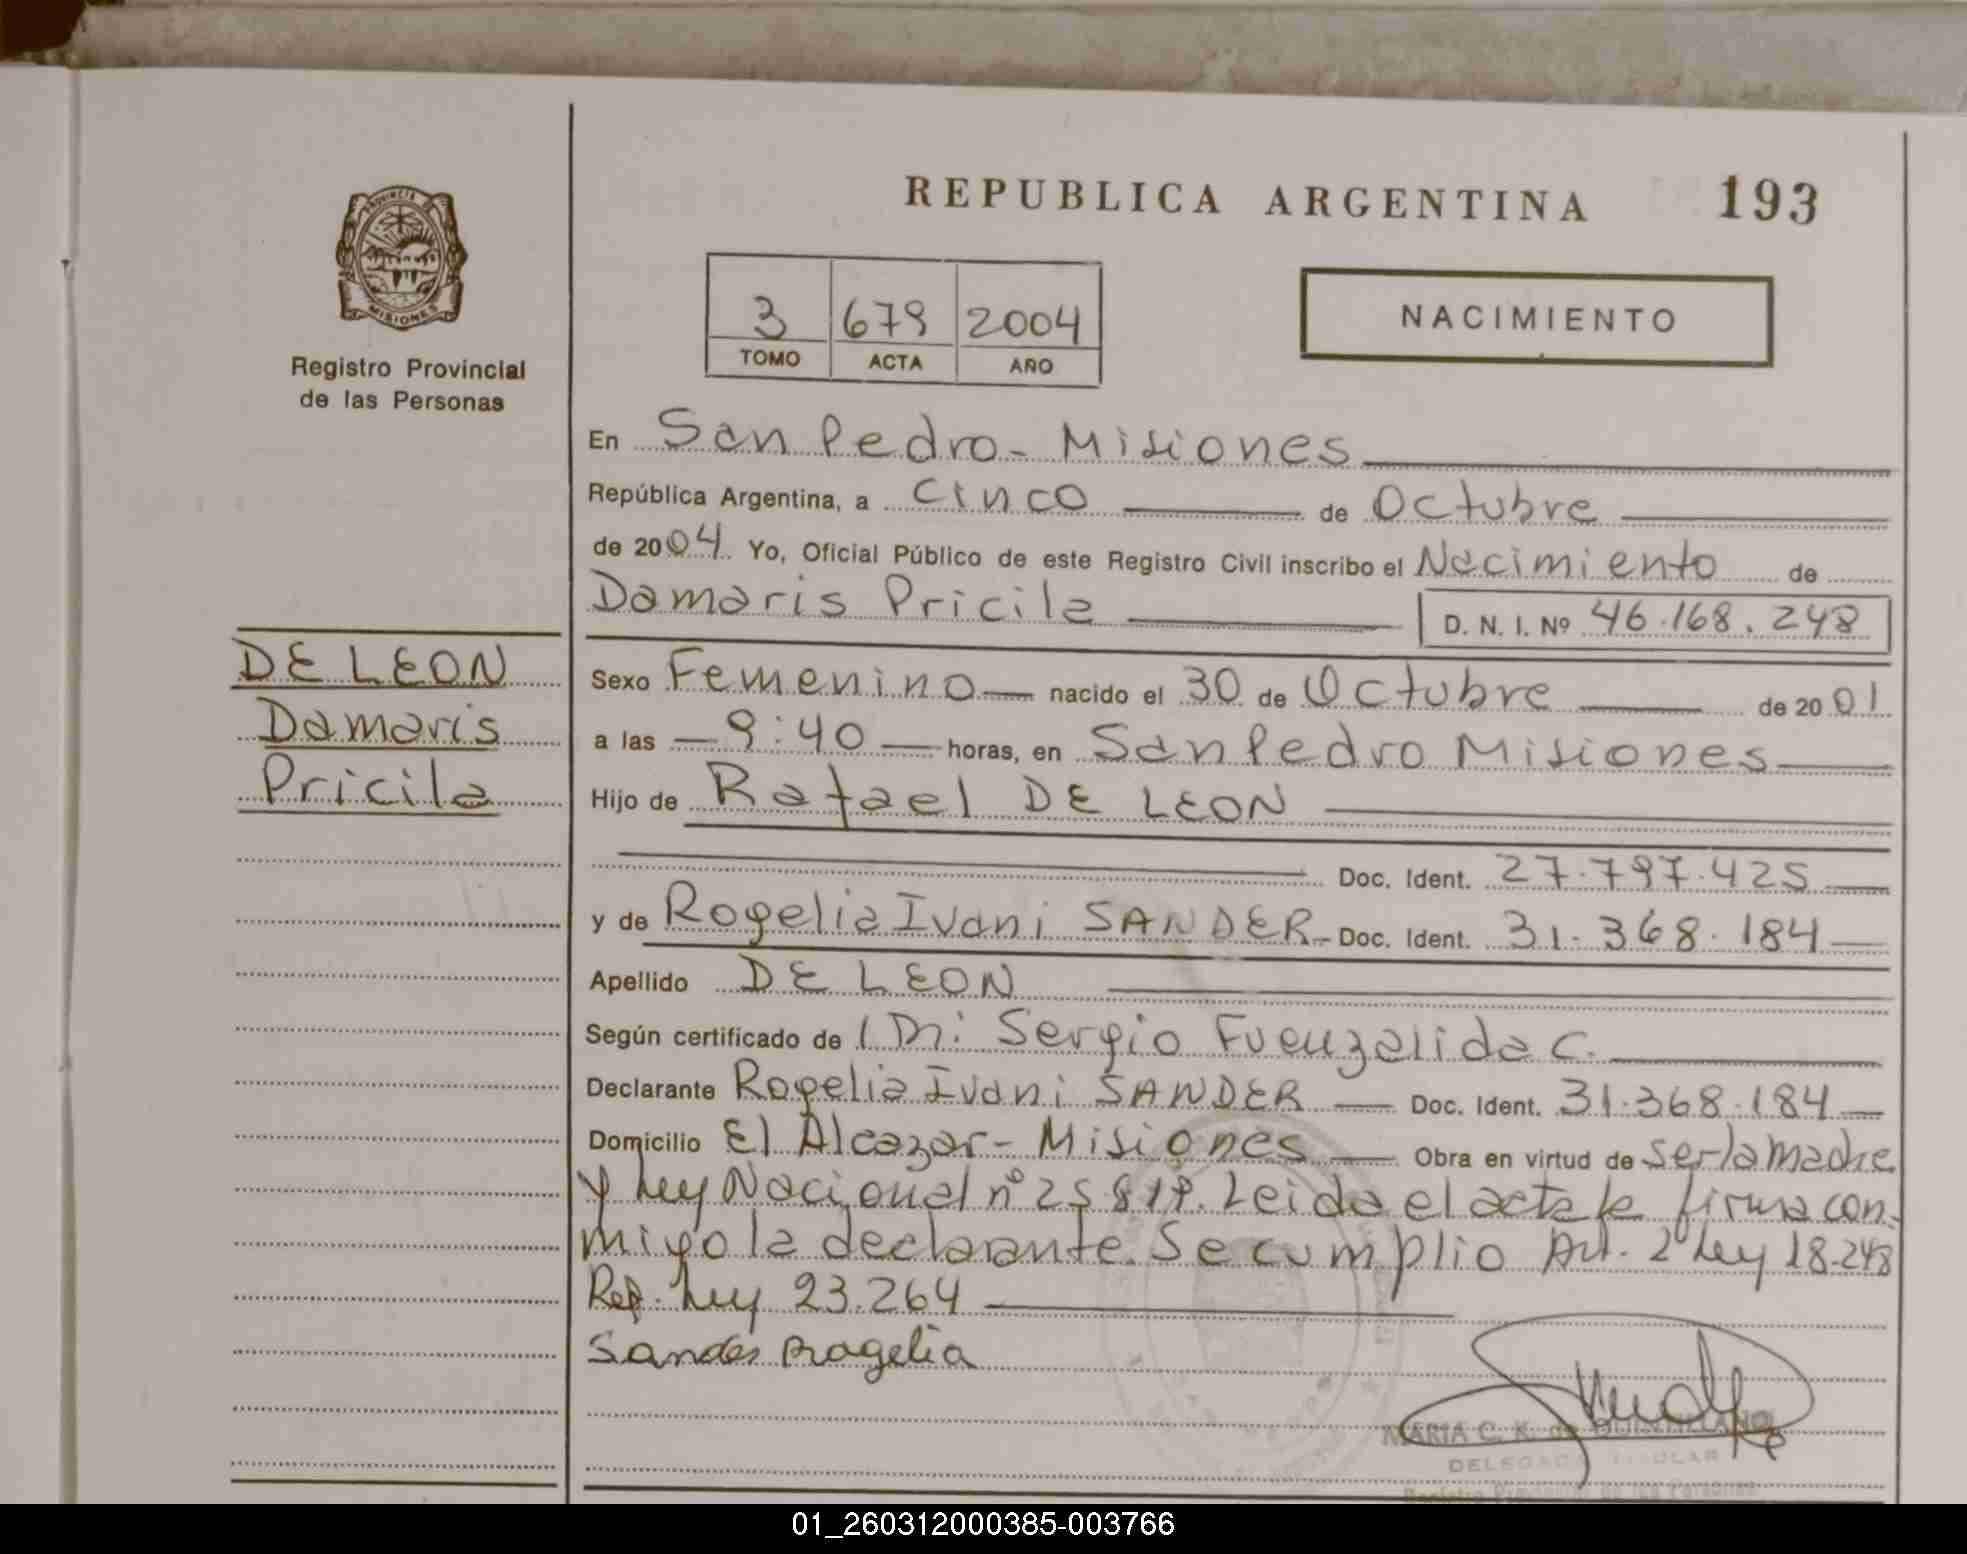 REPUBLICA ARGENTINA 193
PROVINCIA DE
MISIONES
Registro Provincial
de las Personas
3 679 2004
TOMO ACTA AÑO
NACIMIENTO
En San Pedro - Misiones
República Argentina, a Cinco de Octubre
de 2004 Yo, Oficial Público de este Registro Civil inscribo el Nacimiento de
Damaris Pricila D. N. I. Nº 46.168.248
DE LEON
Damaris
Pricila
Sexo Femenino nacido el 30 de Octubre de 2001
a las 9:40 horas, en San Pedro Misiones
Hijo de Rafael DE LEON
Doc. Ident. 27.797.425
y de Rogelia Ivani SANDER - Doc. Ident. 31.368.184
Apellido DE LEON
Según certificado de Sergio Fuenzalida C.
Declarante Rogelia Ivani SANDER Doc. Ident. 31.368.184
Domicilio El Alcazar - Misiones Obra en virtud de ser la madre
y Ley Nacional nº 25819. Leida el acta la firma con-
migo la declarante. Se cumplio Art. 2º Ley 18.248
Ref. Ley 23.264
Sander Rogelia
MARIA C. K. de QUINTILLAN
DELEGADA TITULAR
Registro Provincial de las Personas
01_260312000385-003766